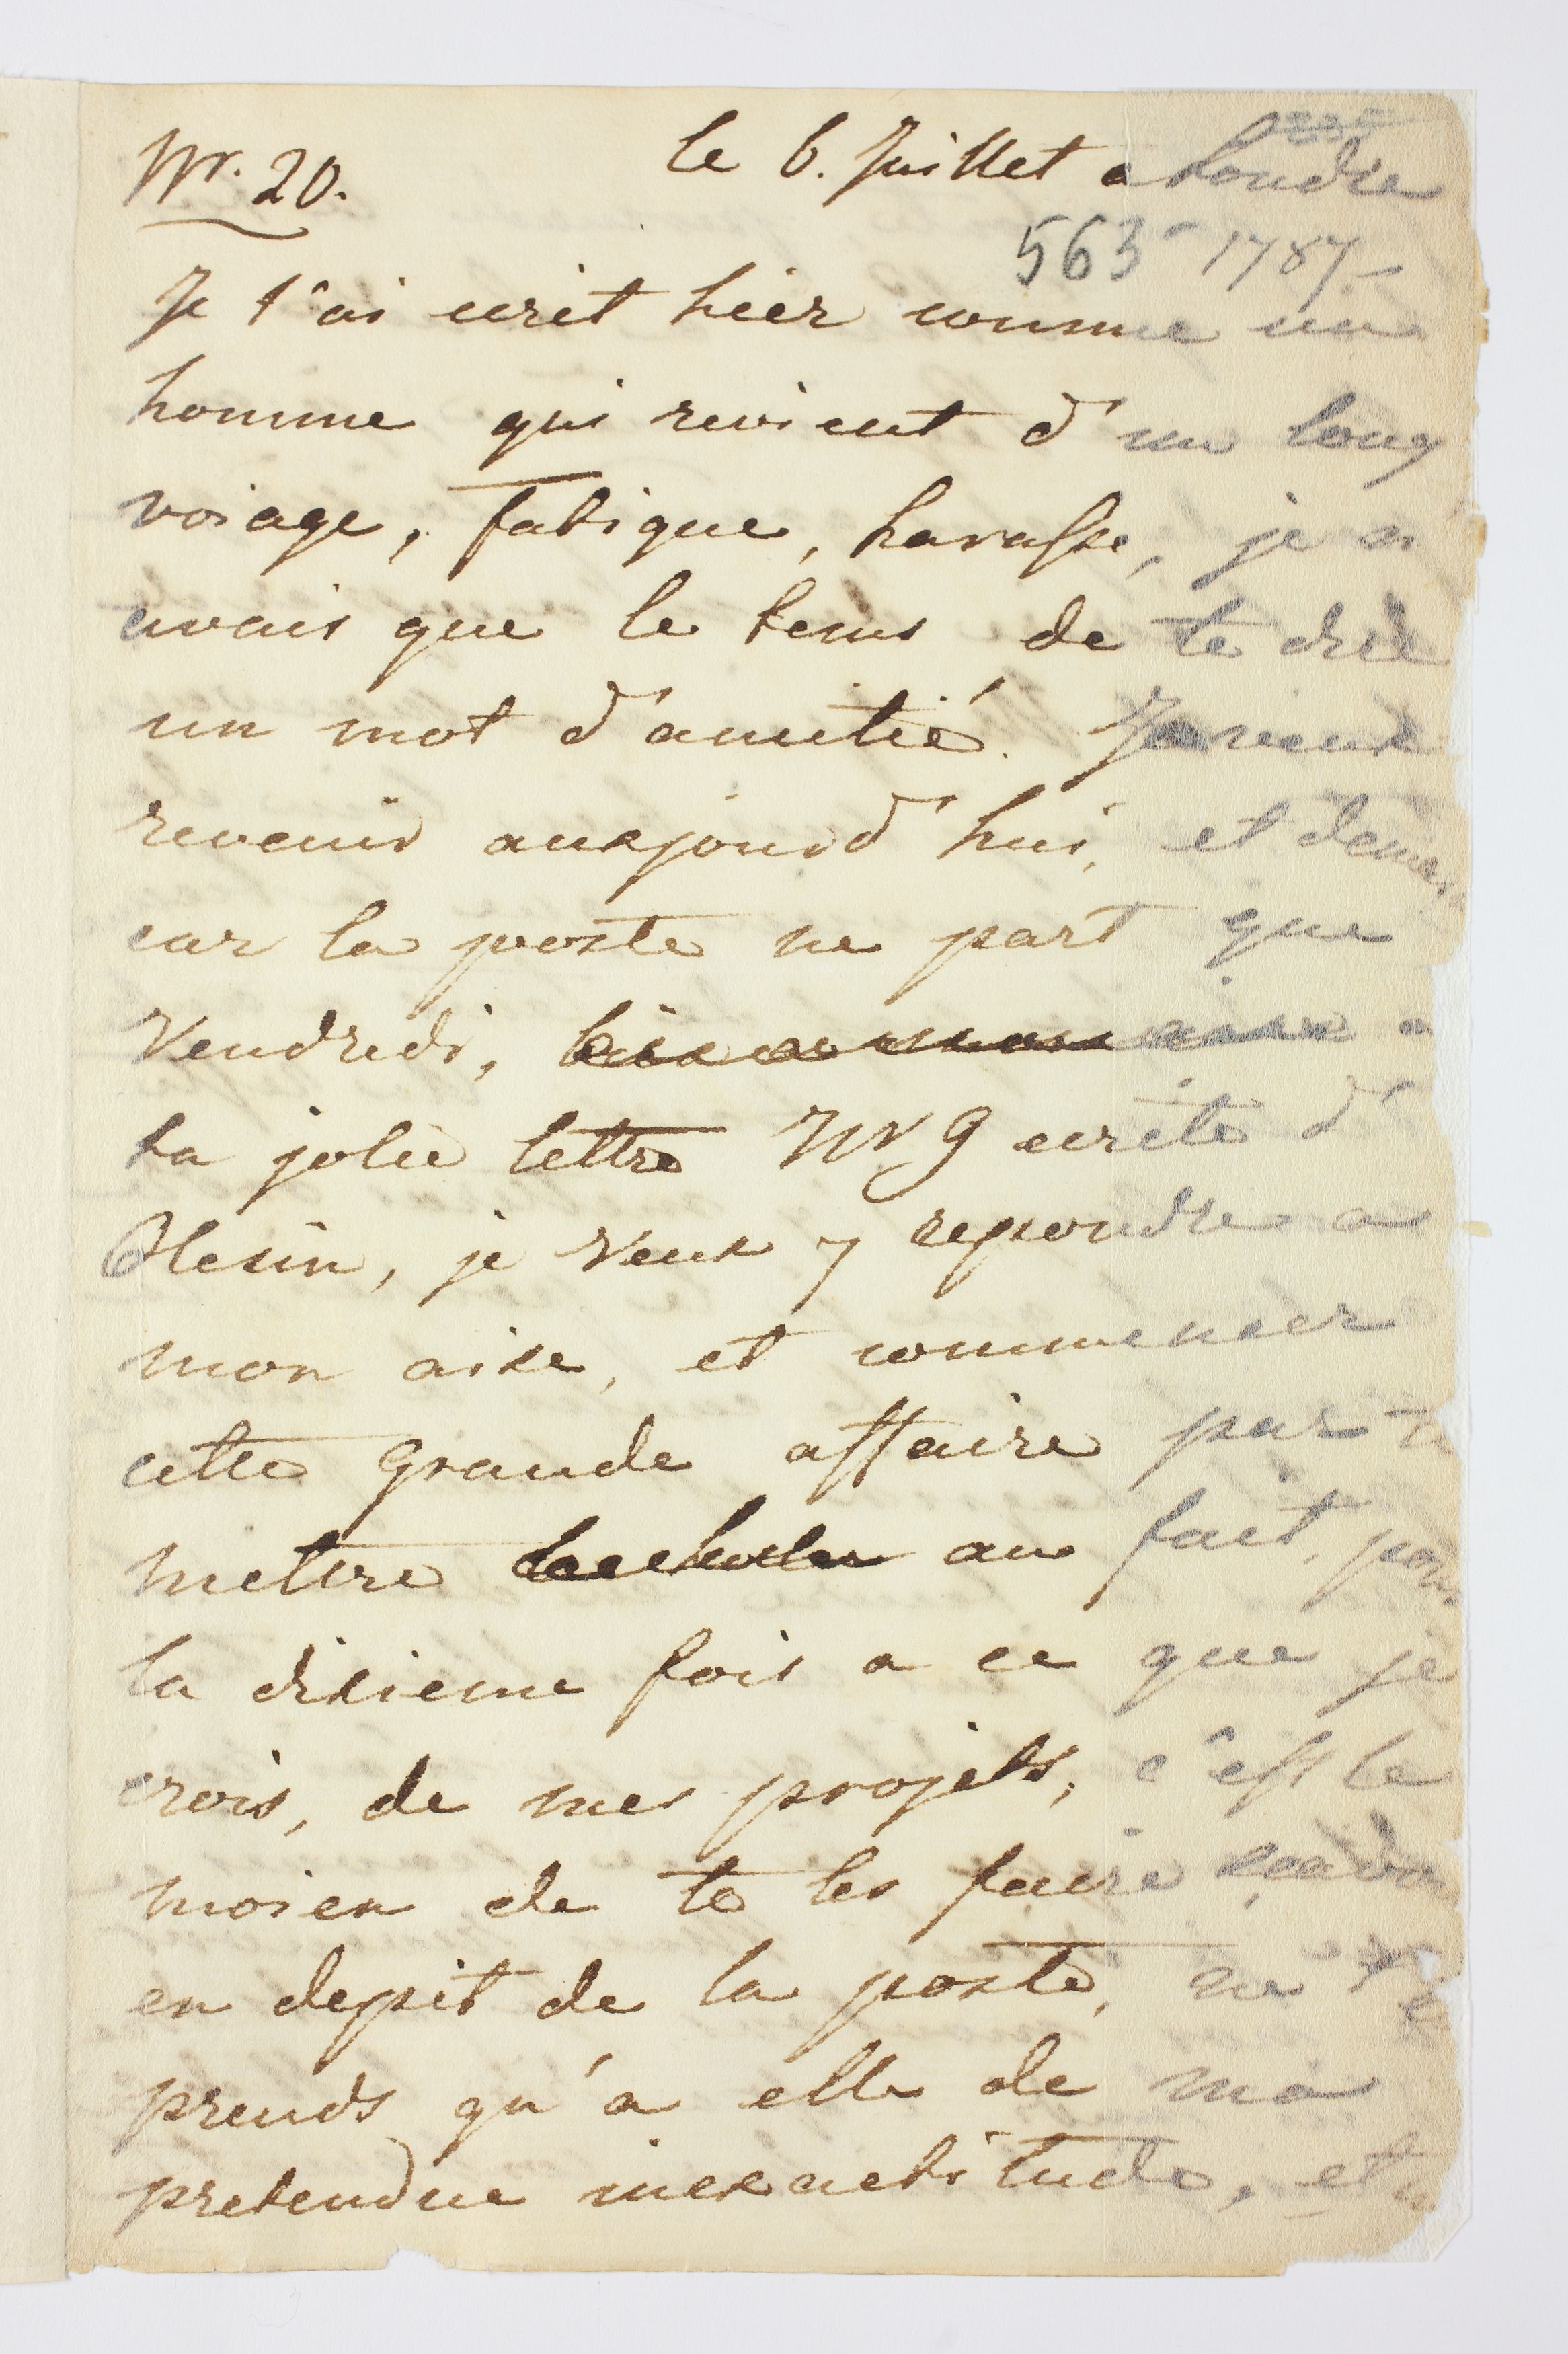 Nr. 20. le 6. Juillet a Londre
563 1787
Je t'ai ecrit hier comme un
homme qui revient d'un long
voiage, fatigue, harasse, je n
avais que le tems de te dire
un mot d'amitié. Je veux
revenir aujourd'hui, et demain
car la poste ne part que
Vendredi, a
ta jolie lettre Nr 9 ecrite d'
Olesin, je veux y repondre a
mon aise, et commencer
cette grande affaire par te
mettre au fait, pour
la dixieme fois a ce que je
crois, de mes projets, c'est le
moien de te les faire scavoir
en depit de la poste, ne te
prends qu'a elle de ma
pretendue inexactitude, et